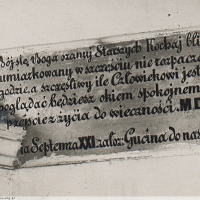 Bój się Boga szanuj Starszych Kochaj bli
umiarkowany w szczęściu nie rozpacz
godzie, a szczęśliwy ile Człowiekowi jest
oglądać będziesz okiem spokojnem
przejście z życia do wieczności. MD
ia Septemra XXI założ: Gucina do nas